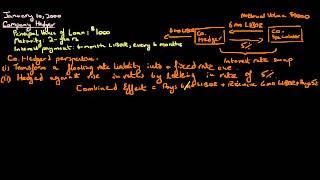 January 10, 2000
Company Hedger
Principal Value of Loan: $1000
Maturity: 2-years
Interest payment: 6-month LIBOR, every 6 months
Notional Value: $1000
6mo LIBOR
6mo LIBOR
Co. Hedger
5%
Co. Speculator
Interest rate swap
Co. Hedger's perspective.
(i) Transform a floating rate liability into a fixed rate one.
(ii) Hedged against rise in rates by locking in rate of 5%
Combined Effect = Pays 6mo LIBOR + Receive 6mo LIBOR + Pays 5%